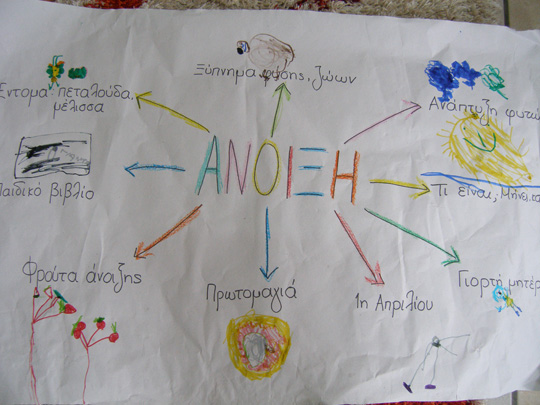 Ξύπνημα φύσης, ζώων
Έντομα: πεταλούδα,
μέλισσα
Ανάπτυξη φυτώ
ΑΝΟΙΞΗ
Παιδικό βιβλίο
Τι είναι, Μήνες
Φρούτα άνοιξης
Πρωτομαγιά
1η Απριλίου
Γιορτή μητέρ